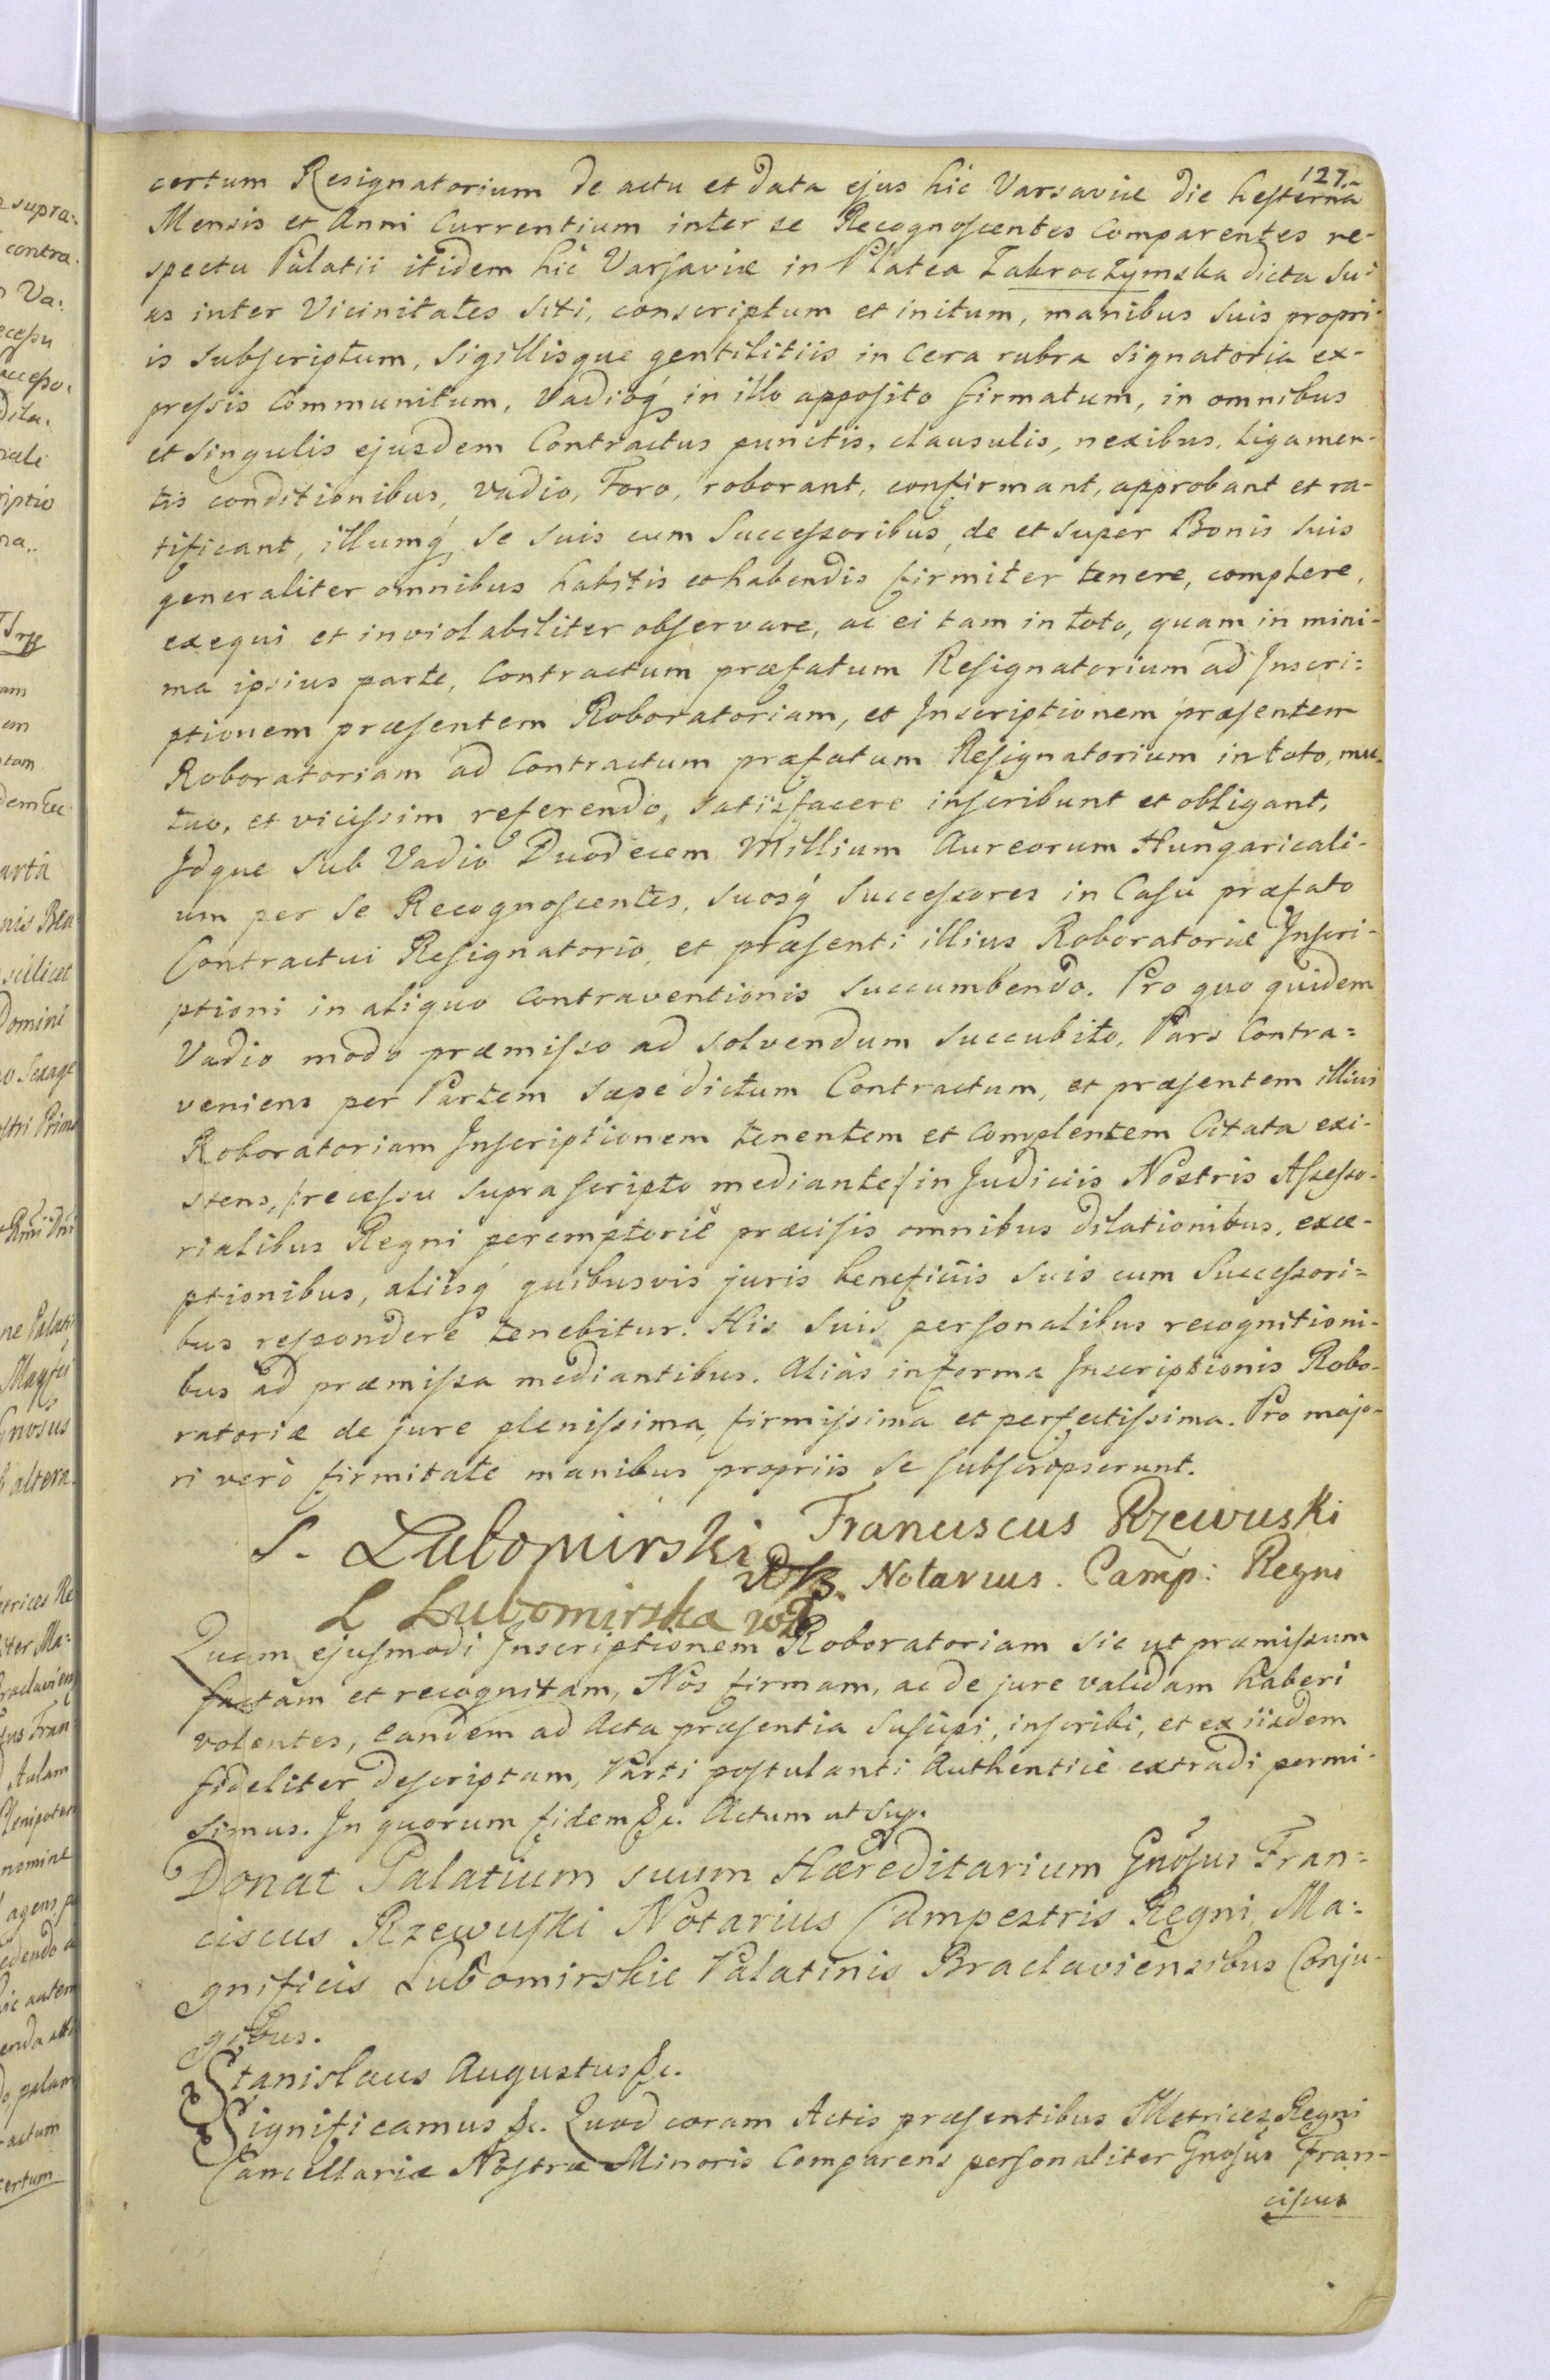 127.
certum Resignatorium de actu et data ejus hic Varsaviæ die hesterna
Mensis et Anni Currentium inter se Recognoscentes Comparentes re-
spectu Palatii itidem hic Varsaviæ in Platea Zakroczymska dicta su-
as inter Vicinitates siti, conscriptum et initum, manibus suis propri-
is subscriptum, Sigillisque gentilitiis in Cera rubra signatoria ex-
pressis Communitum, Vadioq́ in illo apposito firmatum, in omnibus
et singulis ejusdem Contractus punctis, clausulis, nexibus, Ligamen-
tis conditionibus, vadio, Foro, roborant, confirmant, approbant et ra-
tificant, illumq́ se suis cum Successoribus, de et super Bonis suis
generaliter omnibus habitis et habendis firmiter tenere, complere,
exequi et inviolabiliter observare, ac ei tam in toto, quam in mini-
ma ipsius parte, Contractum præfatum Resignatorium ad Inscri=
ptionem præsentem Roboratoriam, et Inscriptionem præsentem
Roboratoriam ad Contractum præfatum Resignatorium in toto, mu-
tuo, et vicissim referendo, satisfacere inscribunt et obligant,
Idque sub Vadio Duodecem Millium Aureorum Hungaricali-
um per se Recognoscentes, suosq́ Successores in Casu præfato
Contractui Resignatorio, et præsenti illius Roboratoriæ Inscri-
ptioni in aliquo Contraventionis succumbendo. Pro quo quidem
Vadio modo præmisso ad solvendum succubito, Pars Contra=
veniens per Partem sæpedictum Contractum, et præsentem illius
Roboratoriam Inscriptionem tenentem et Complentem Citata exi-
stens, /:recessu supra scripto mediante/ in Judiciis Nostris Assesso-
rialibus Regni peremptoriè præcisis omnibus dilationibus, exce-
ptionibus, aliisq́ quibusvis juris beneficiis suis cum Successori=
bus respondere tenebitur. His suis personalibus recognitioni-
bus ad præmissa mediantibus. Aliàs in forma Inscriptionis Robo-
ratoriæ de jure plenissima, firmissima et perfectissima. Pro majo-
ri verò firmitate manibus propriis se subscripserunt.
S. Lubomirski
Franciscus Rzewuski
Notarius. Camp: Regni
L Lubomirska
Quam ejusmodi Inscriptionem Roboratoriam sic ut præmissum
factam et recognitam, Nos firmam, ac de jure validam haberi
volentes, eandem ad Acta præsentia suscipi, inscribi, et ex iisdem
fideliter descriptam, Parti postulanti Authenticè extradi permi-
simus. In quorum fidem &c. Actum ut sup.
Donat Palatium suum Hæreditarium Gnosus Fran=
ciscus Rzewuski Notarius Campestris Regni, Ma=
gnificis Lubomirskie Palatinis Braclaviensibus Conju-
gibus.
Stanislaus Augustus &c.
Significamus &c. Quod coram Actis præsentibus Metrices Regni
Cancellariæ Nostræ Minoris Comparens personaliter Gnosus Fran-
ciscus